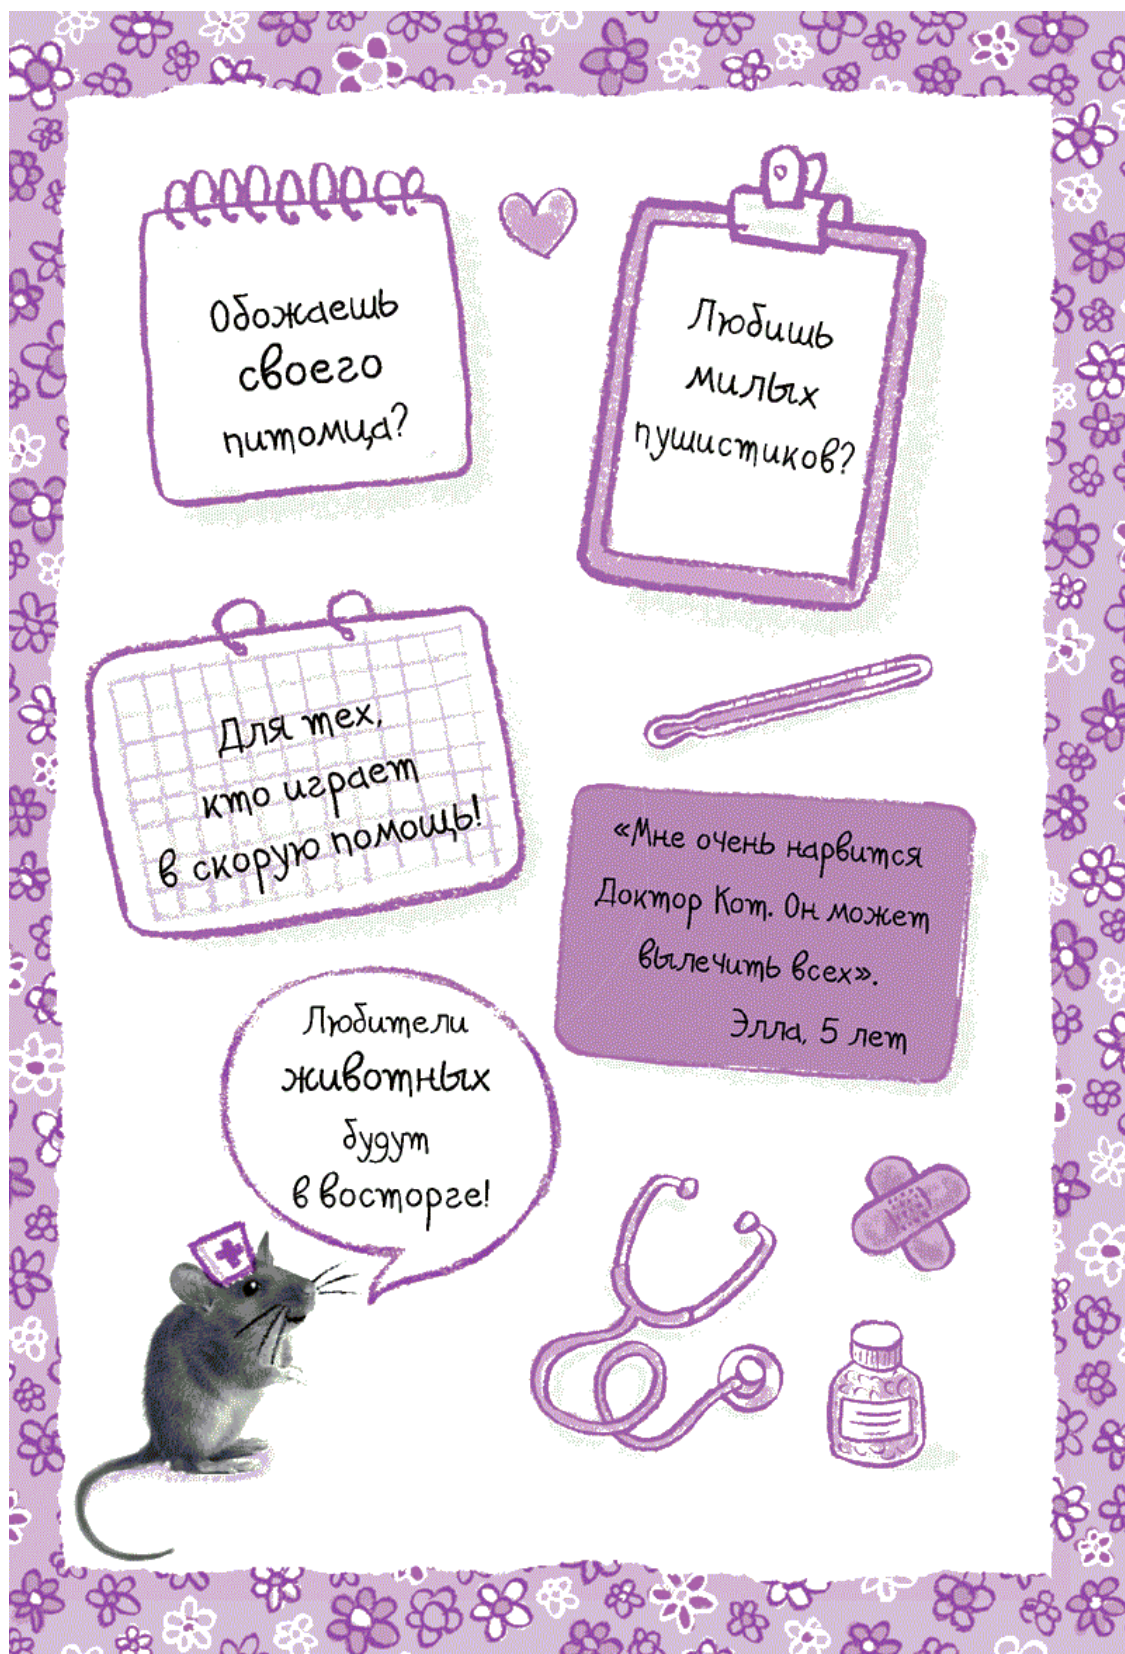 Обожаешь
своего
питомца?
Любишь
милых
пушистиков?
Для тех,
кто играет
в скорую помощь!
«Мне очень нарвится
Доктор Кот. Он может
вылечить всех».
Элла, 5 лет
Любители
животных
будут
в восторге!